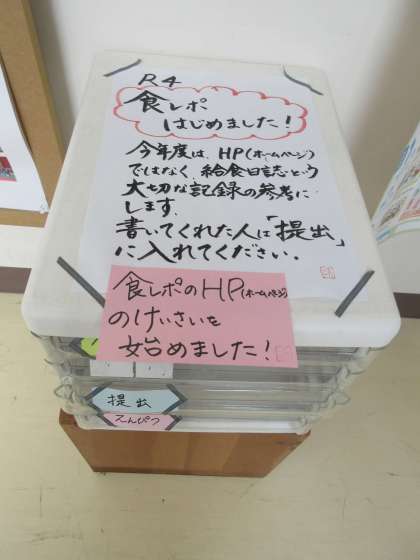 R4
食レポ
はじめました!
今年度は、HP(ホームページ)
ではなく、給食日誌という
大切な記録の参考に
します。
書いてくれた人は「提出」
に入れてください。
食レポのHP(ホームページ)
のけいさいを
始めました!
提出
えんぴつ